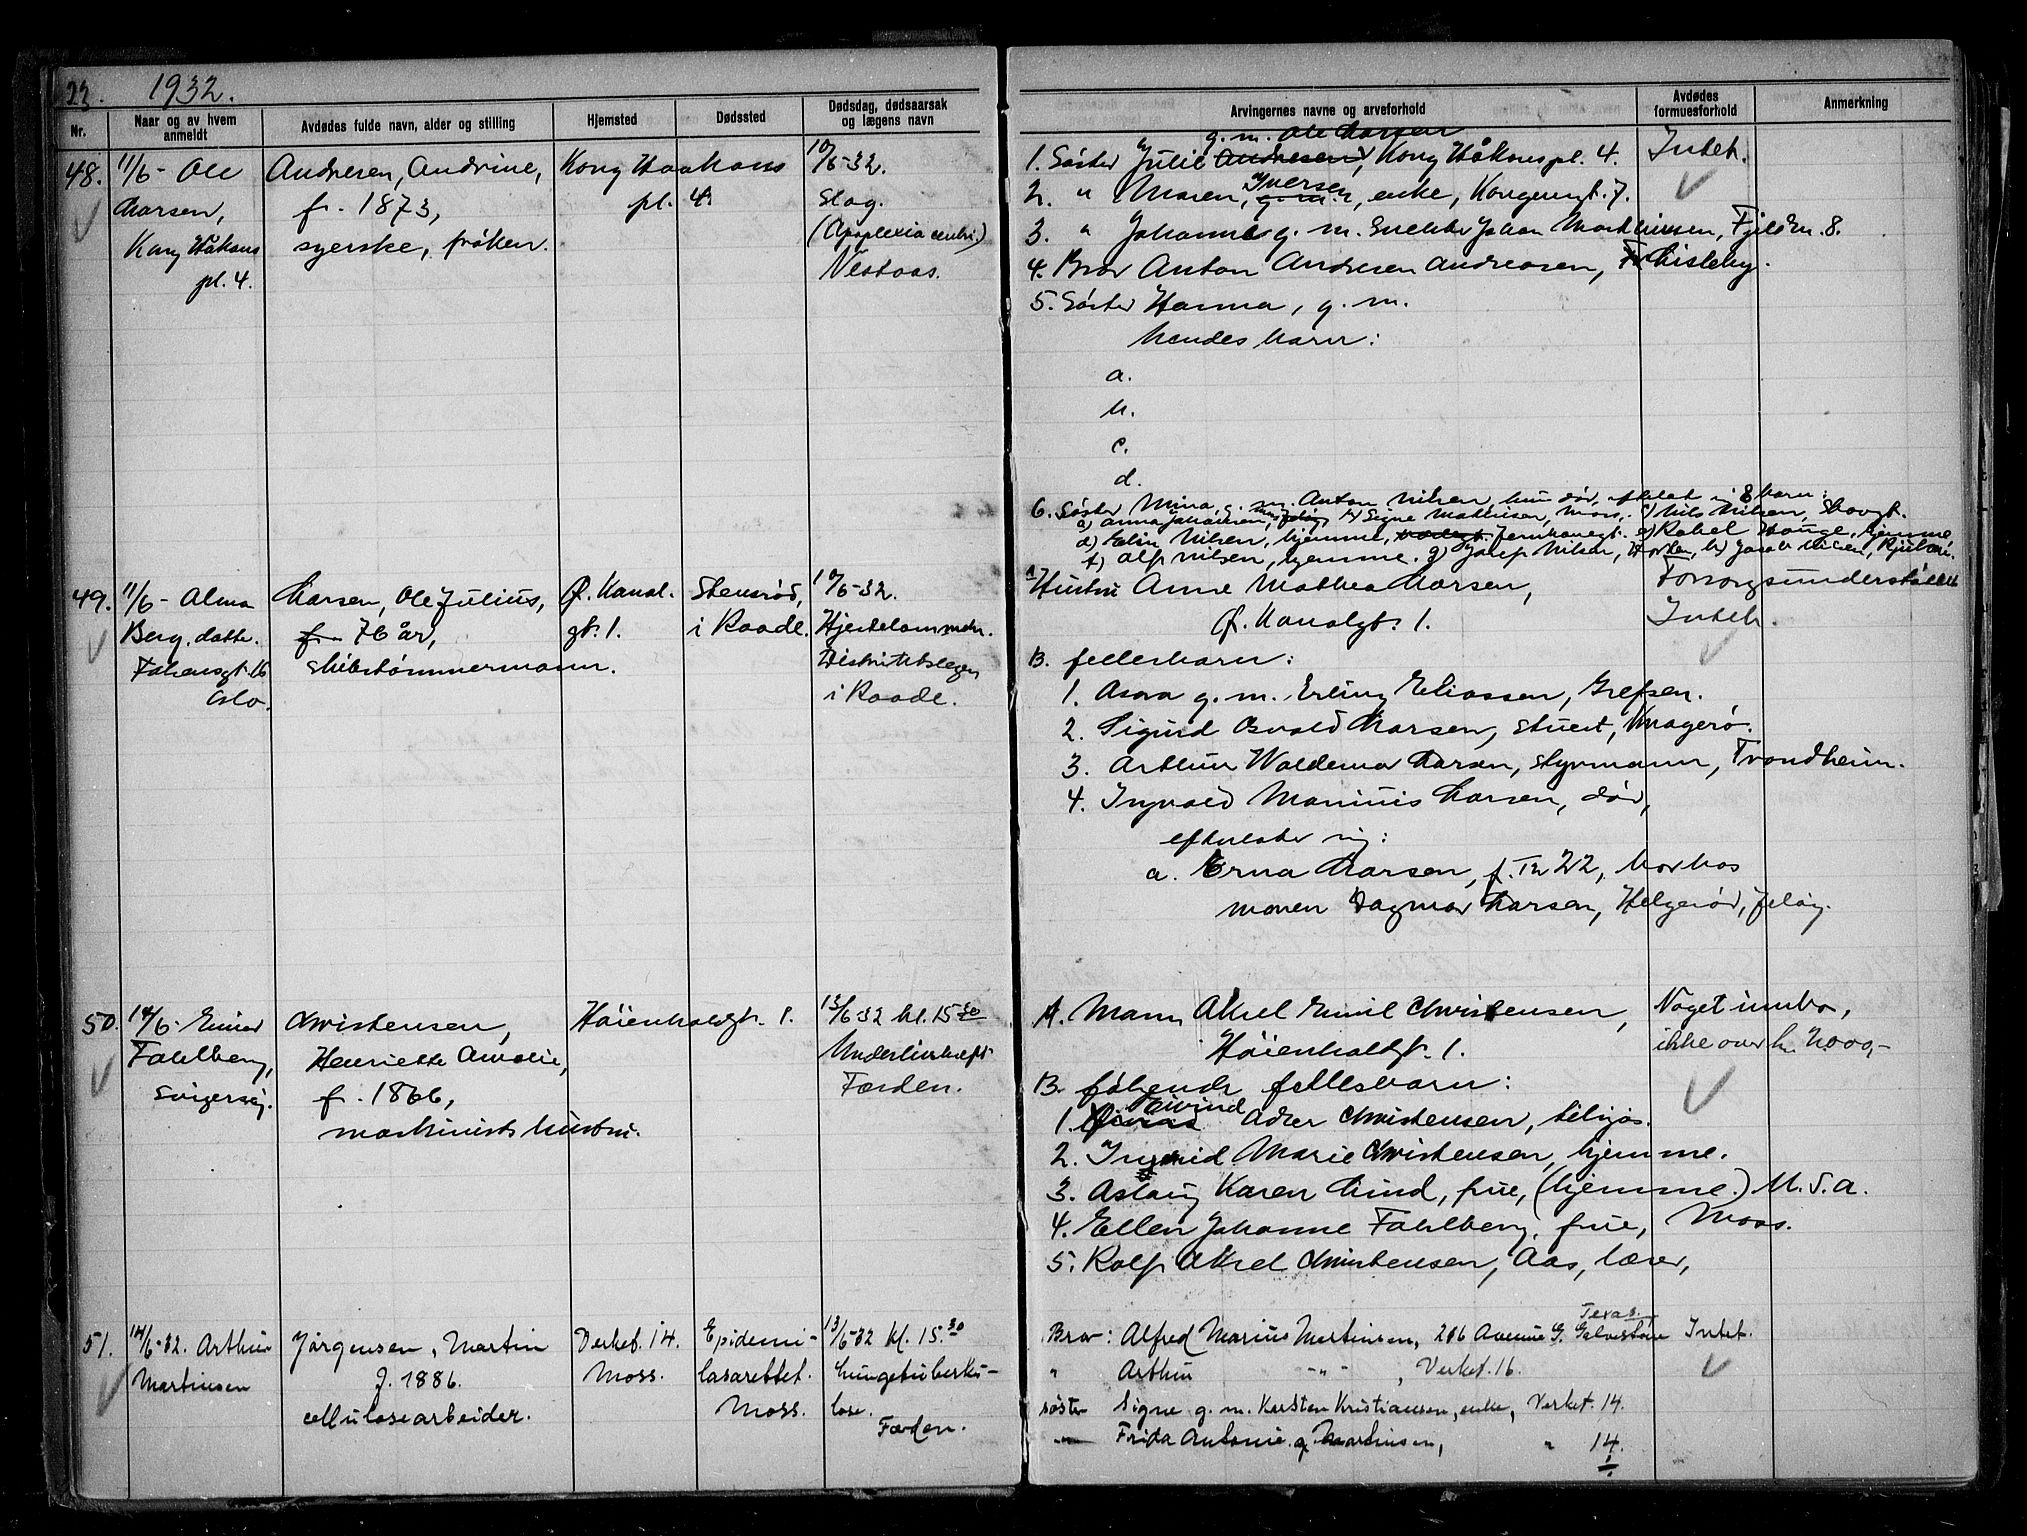 23. 1932.
Nr.
Naar og av hvem anmeldt
Avdødes fulde navn, alder og stilling
Hjemsted
Dødssted
Dødsdag, dødsaarsak og lægens navn
Arvingernes navne og arveforhold
Avdødes formuesforhold
Anmerkning
48. 11/6 - Ole
Larsen,
Kong Håkons
pl. 4.
Andresen, Andrine,
f. 1873,
syerske, frøken.
Kong Haakons
pl. 4.
10/6-32.
Slag.
(Apoplexia cerebri)
Nestaas.
g. m. Ole Larsen
1. Søster Julie Andresen, Kong Håkonspl. 4.
2. " Maren, Iversen, enke, Kongensgt. 7.
3. " Johanne g. m. Snekker Johan Martinsen, Fjeldv. 8.
4. Bror Anton Andresen Andreasen, Lisleby.
5. Søster Hanna, g. m.
hendes barn:
a.
b.
c.
d.
6. Søster Mina, g. m. Anton Nilsen, hun død, efterlat sig 8 barn:
a) Anna Johansen, Jeløy, b) Signe Mathisen, Moss, c) Nils Nilsen, Skovgt.
d) Elin Nilsen, hjemme, Jernbanegt. e) Rakel Hauge, hjemme,
f) Alf Nilsen, hjemme. g) Josef Nilsen, Horten, h) Jacob Nilsen, Rjukan.
Intet.
49. 11/6 - Alma
Berg, datter.
gt. 16
Oslo.
Larsen, Ole Julius,
f. 76 år,
skibstømmermann.
Ø. Kanal.
gt. 1.
Stensrød,
i Raade.
10/6-32.
Hjertelammelse.
Distriktslægen
i Raade.
A Hustru Anne Mathea Larsen,
Ø. Kanalgt. 1.
B. fellesbarn:
1. Asora g. m. Erling Eliassen, Grefsen.
2. Sigurd Osvald Larsen, stuert, Knagerø.
3. Arthur Waldemar Larsen, styrmann, Trondheim.
4. Ingvald Marinius Larsen, død,
efterlater sig:
a. Erna Larsen, f. 22, bor hos
moren Dagmar Larsen, Helgerød, Jeløy.
Forsorgsunderstøttet
Intet.
50. 14/6 - Einar
Fahlberg,
svigersøn.
Christensen,
Henriette Amalie,
f. 1866,
maskinists hustru.
Høienhaldgt. 1.
13/6-32 kl. 15 30
Underlivskreft
Førden.
A. Mann Aksel Emil Christensen,
Høienhaldgt. 1.
B. følgende fellesbarn:
1. Eivind Adler Christensen, tilsjøs.
2. Ingrid Marie Christensen, hjemme.
3. Aslaug Karen Lind, frue, (hjemme.) U.S.A.
4. Ellen Johanne Fahlberg, frue, Moss.
5. Rolf Aksel Christensen, Aas, lærer,
Noget innbo,
ikke over kr. 2000,-
51. 14/6-32. Arthur
Martinsen
Jørgensen, Martin
f. 1886.
cellulosearbeider.
Verket. 14.
Moss.
Epidemi-
lasarettet.
Moss.
13/6-32 kl. 15.30
Lungetuberku-
lose.
Førden.
Texas.
Bror: Alfred Marius Martinsen, 206 Avenue G. Galveston
" Arthur " " , Verket. 16.
søster Signe g. m. Karsten Kristiansen, enke, Verket. 14.
" Frida Antonie g. Martinsen, " 14.
Intet.